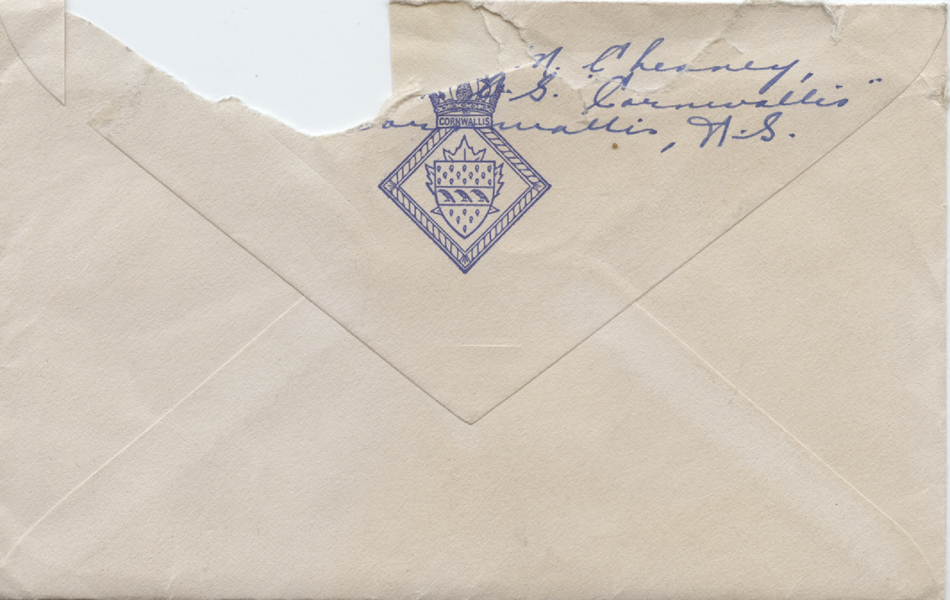 N. Chenney,
S. Cornwallis"
Cornwallis, N.S.
CORNWALLIS